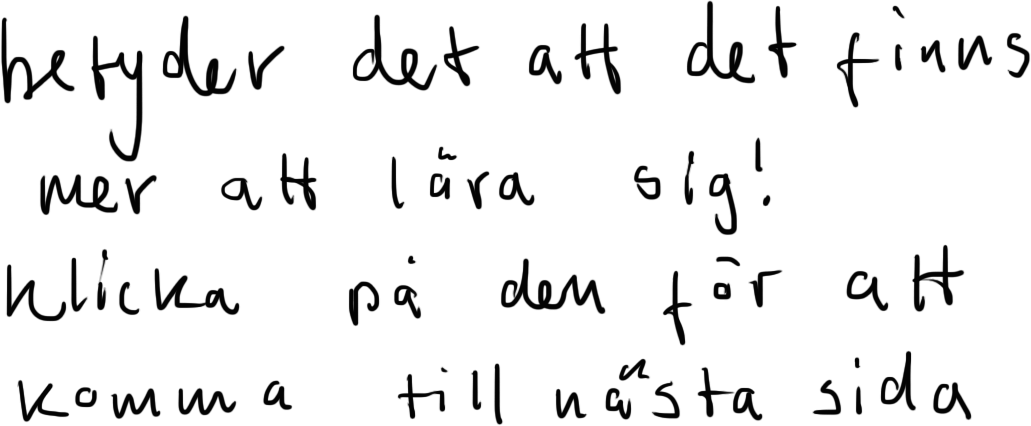 betyder det att det finns
mer att lära sig!
klicka på den för att
komma till nästa sida